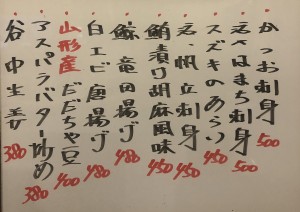 かつお刺身 500
天さはまち刺身 500
スズキのあらい 450
天、帆立刺身 450
鮪漬け胡麻風味 450
鯨竜田揚げ 480
白エビ唐揚げ 480
山形産だだちゃ豆 400
アスパラバター炒め 380
谷中生姜 380